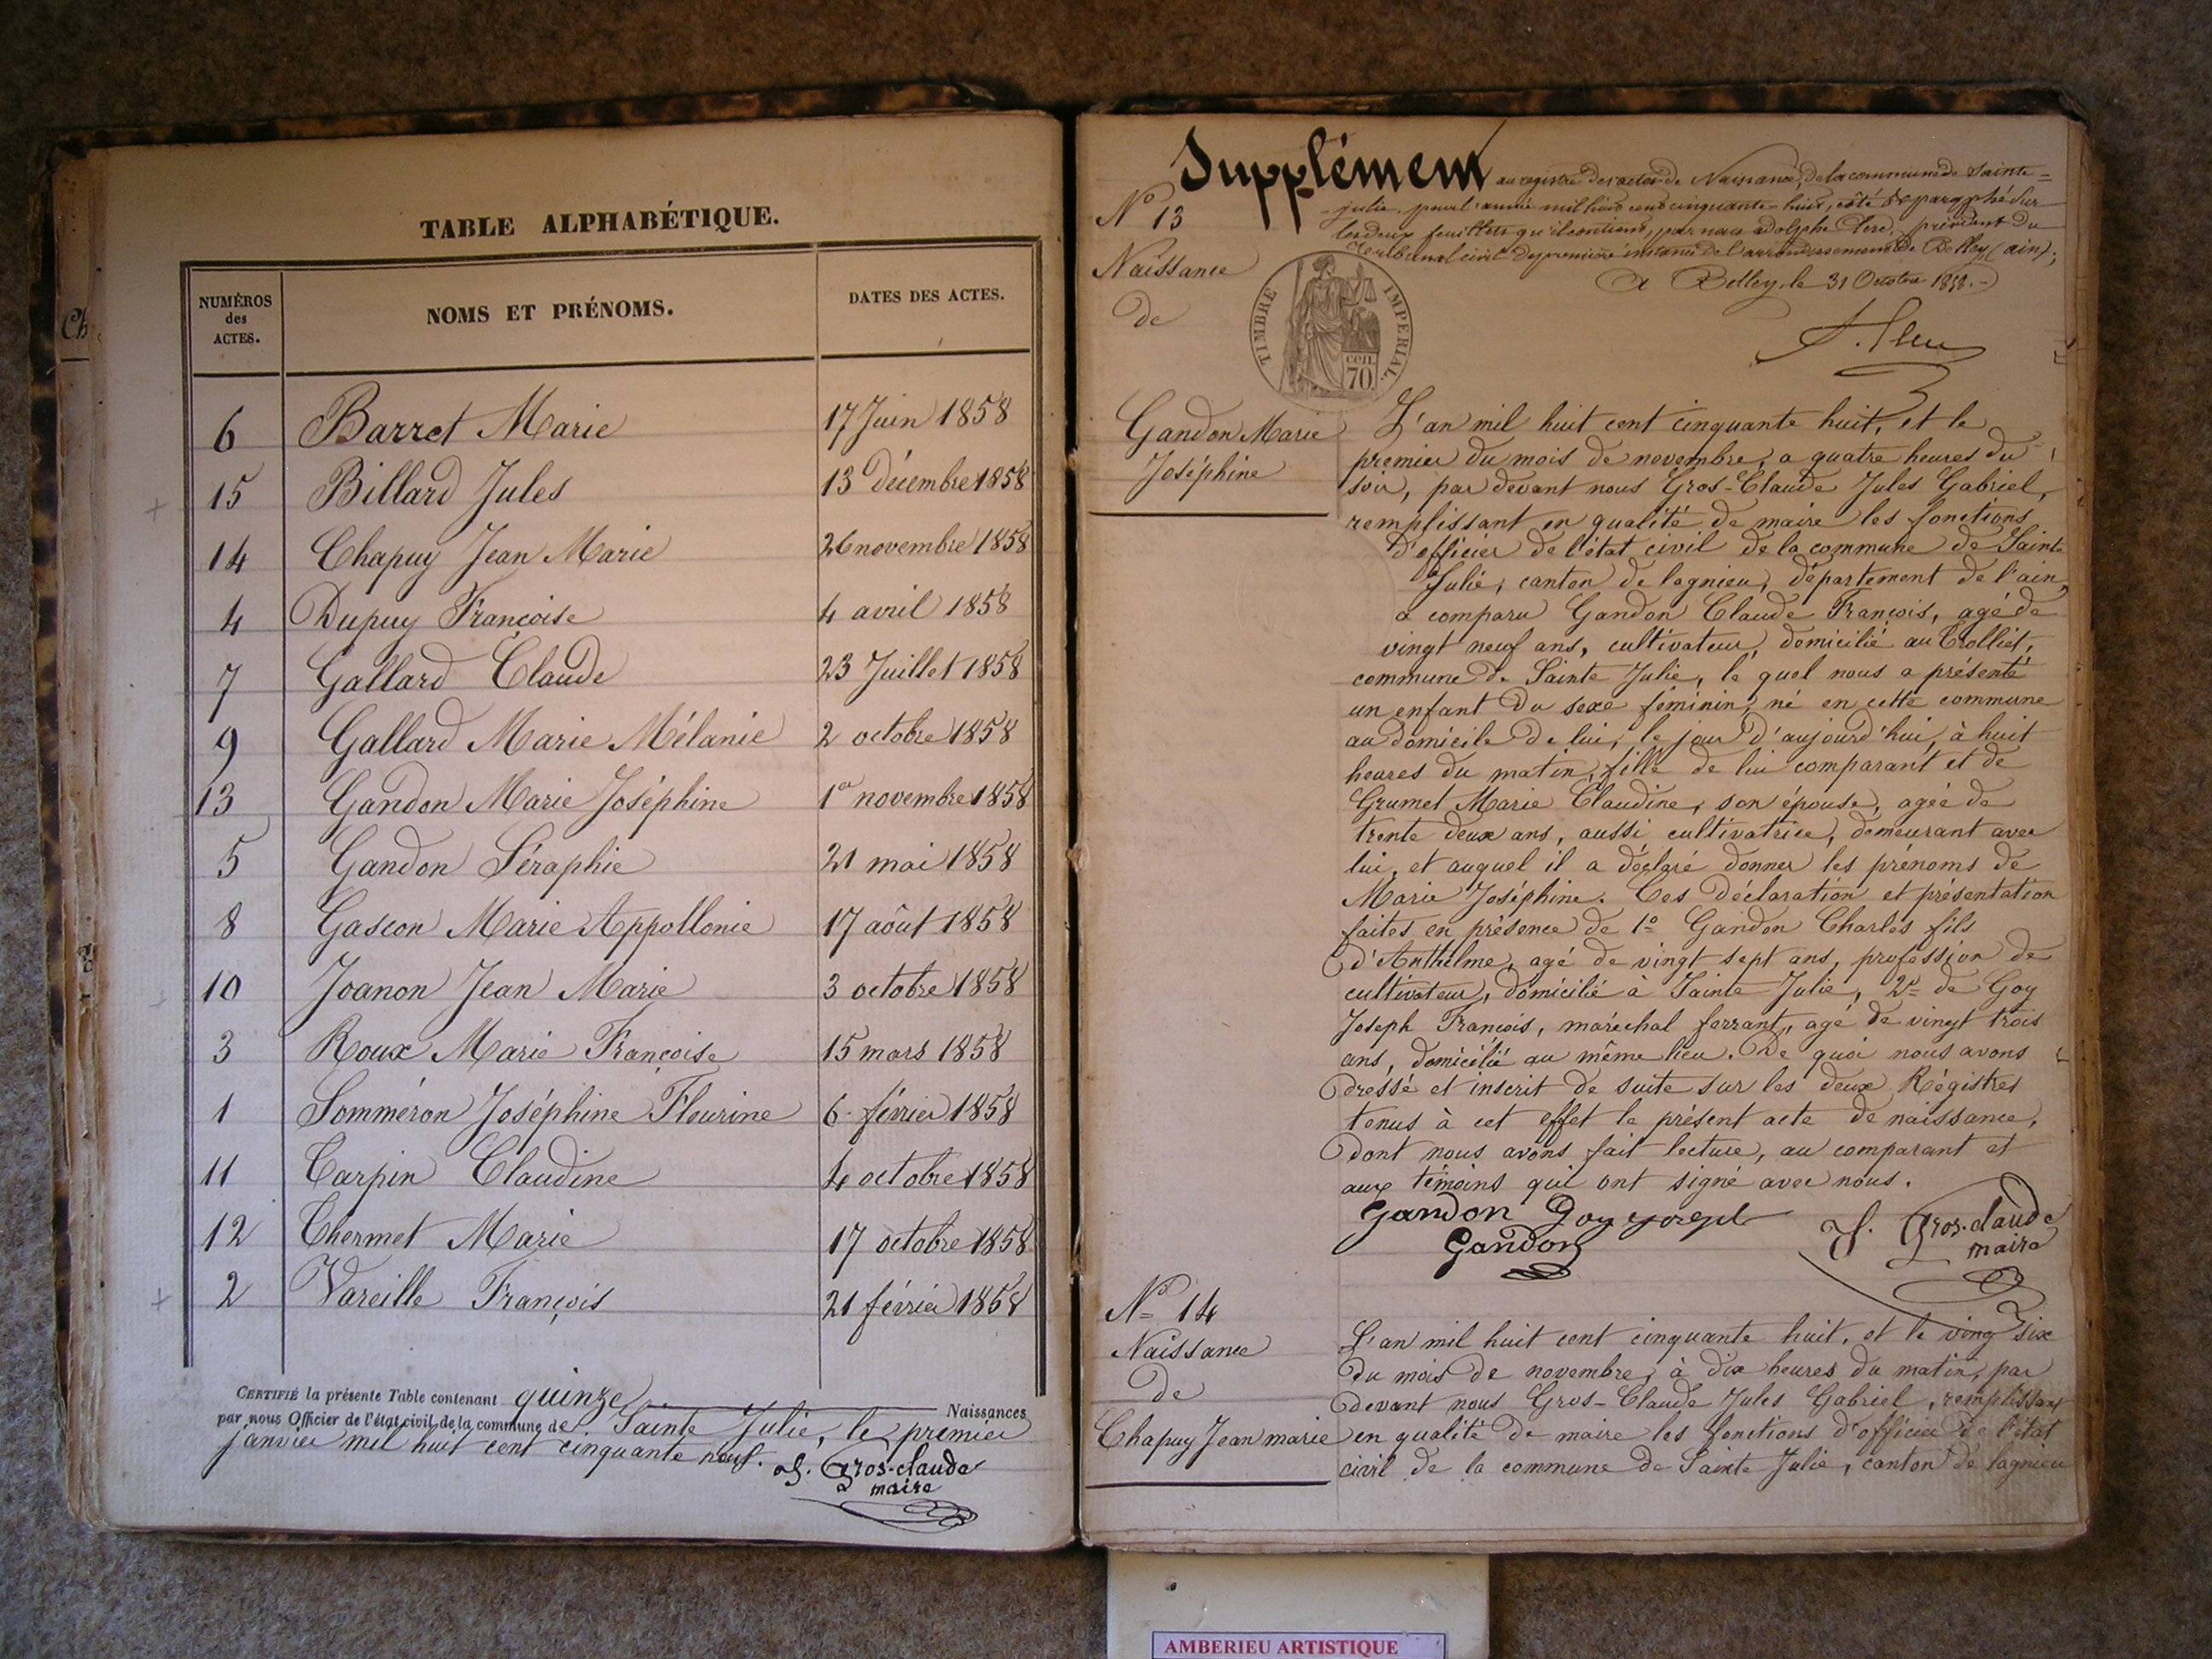 TABLE ALPHABÉTIQUE.
NUMÉROS des ACTES.
NOMS ET PRÉNOMS.
DATES DES ACTES.
6 Barret Marie 17 Juin 1858
15 Billard Jules 13 décembre 1858
14 Chapuy Jean Marie 26 novembre 1858
4 Dupuy Françoise 4 avril 1858
7 Gallard Claude 23 Juillet 1858
9 Gallard Marie Mélanie 2 octobre 1858
13 Gandon Marie Joséphine 1er novembre 1858
5 Gandon Séraphie 21 mai 1858
8 Gascon Marie Appollonie 17 août 1858
10 Joanon Jean Marie 3 octobre 1858
3 Roux Marie Françoise 15 mars 1858
1 Somméron Joséphine Fleurine 6 février 1858
11 Tarpin Claudine 4 octobre 1858
12 Thermet Marie 17 octobre 1858
2 Vareille François 21 février 1858
CERTIFIÉ la présente Table contenant quinze Naissances
par nous Officier de l'état civil de la commune de Sainte Julie, le premier
janvier mil huit cent cinquante neuf.
J. Gros-claude
maire
Supplément au registre des actes de Naissance, de la commune de Sainte=
-julie, pour l'année mil huit cent cinquante-huit, côté & paraphé sur
les deux feuillets qu'il contient, par nous adolphe président du
tribunal civil de première instance de l'arrondissement de Belley (ain);
A Belley, le 31 Octobre 1858.
TIMBRE IMPERIAL.
cen
70.
No 13
Naissance
de
Gandon Marie
Joséphine
L'an mil huit cent cinquante huit, et le
premier du mois de novembre, a quatre heures du
soir, par devant nous Gros-Claude Jules Gabriel,
remplissant en qualité de maire les fonctions
d'officier de l'état civil de la commune de Sainte
Julie, canton de lagnieu, département de l'ain,
a comparu Gandon Claude François, agé de
vingt neuf ans, cultivateur, domicilié au Trolliet,
commune de Sainte Julie, le quel nous a présenté
un enfant du sexe féminin, né en cette commune
au domicile de lui, le jour d'aujourd'hui, à huit
heures du matin, fille de lui comparant et de
Grumet Marie Claudine, son épouse, agée de
trente deux ans, aussi cultivatrice, demeurant avec
lui, et auquel il a déclaré donner les prénoms de
Marie Joséphine. Ces déclaration et présentation
faites en présence de 1o Gandon Charles fils
d'Anthelme, agé de vingt sept ans, profession de
cultivateur, domicilié à Sainte Julie, 2o de Goy
Joseph François, maréchal ferrant, agé de vingt trois
ans, domicilié au même lieu. De quoi nous avons
dressé et inscrit de suite sur les deux Régistres
tenus à cet effet le présent acte de naissance,
dont nous avons fait lecture, au comparant et
aux témoins qui ont signé avec nous.
Gandon Goy joseph
Gandon
J. Gros-claude
maire
No 14
Naissance
de
Chapuy Jean marie
L'an mil huit cent cinquante huit, et le ving six
du mois de novembre, à dix heures du matin, par
devant nous Gros-Claude Jules Gabriel, remplissant
en qualité de maire les fonctions d'officier de l'état
civil de la commune de Sainte Julie, canton de lagnieu
AMBERIEU ARTISTIQUE